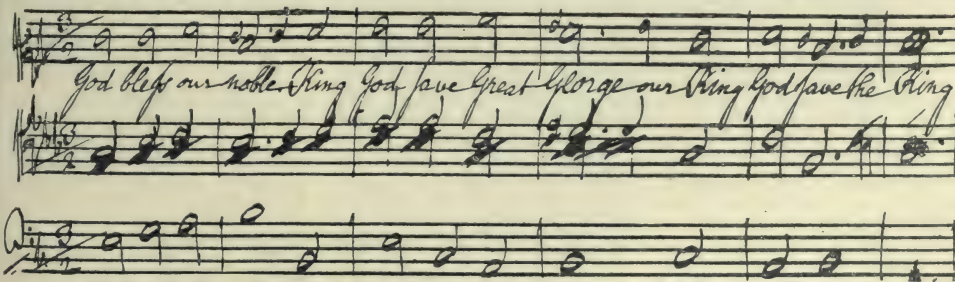 God bleſs our noble King God ſave Great George our King God ſave the King